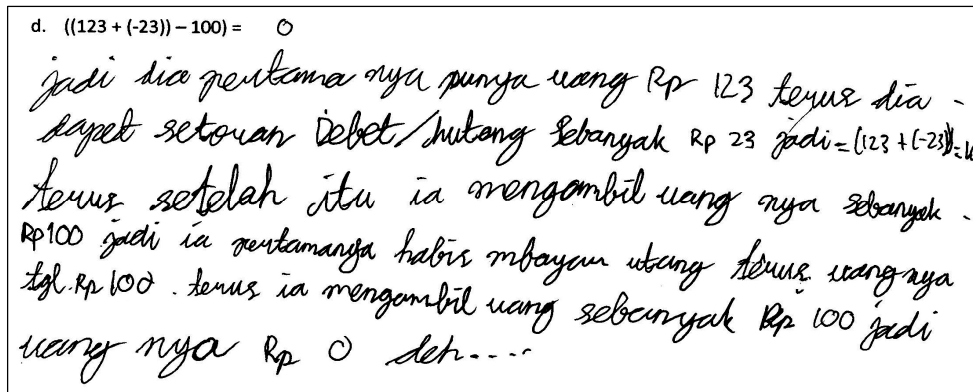 d. ((123 + (-23)) – 100) = 0
jadi dia pertama nya punya uang Rp 123 terus dia -
dapet setoran Debet/hutang sebanyak Rp 23 jadi = (123 + (-23)) =
terus setelah itu ia mengambil uang nya sebanyak -
Rp100 jadi ia pertamanya habis mbayar utang terus uangnya
tgl. Rp 100. terus ia mengambil uang sebanyak Rp 100 jadi
uang nya Rp 0 deh....